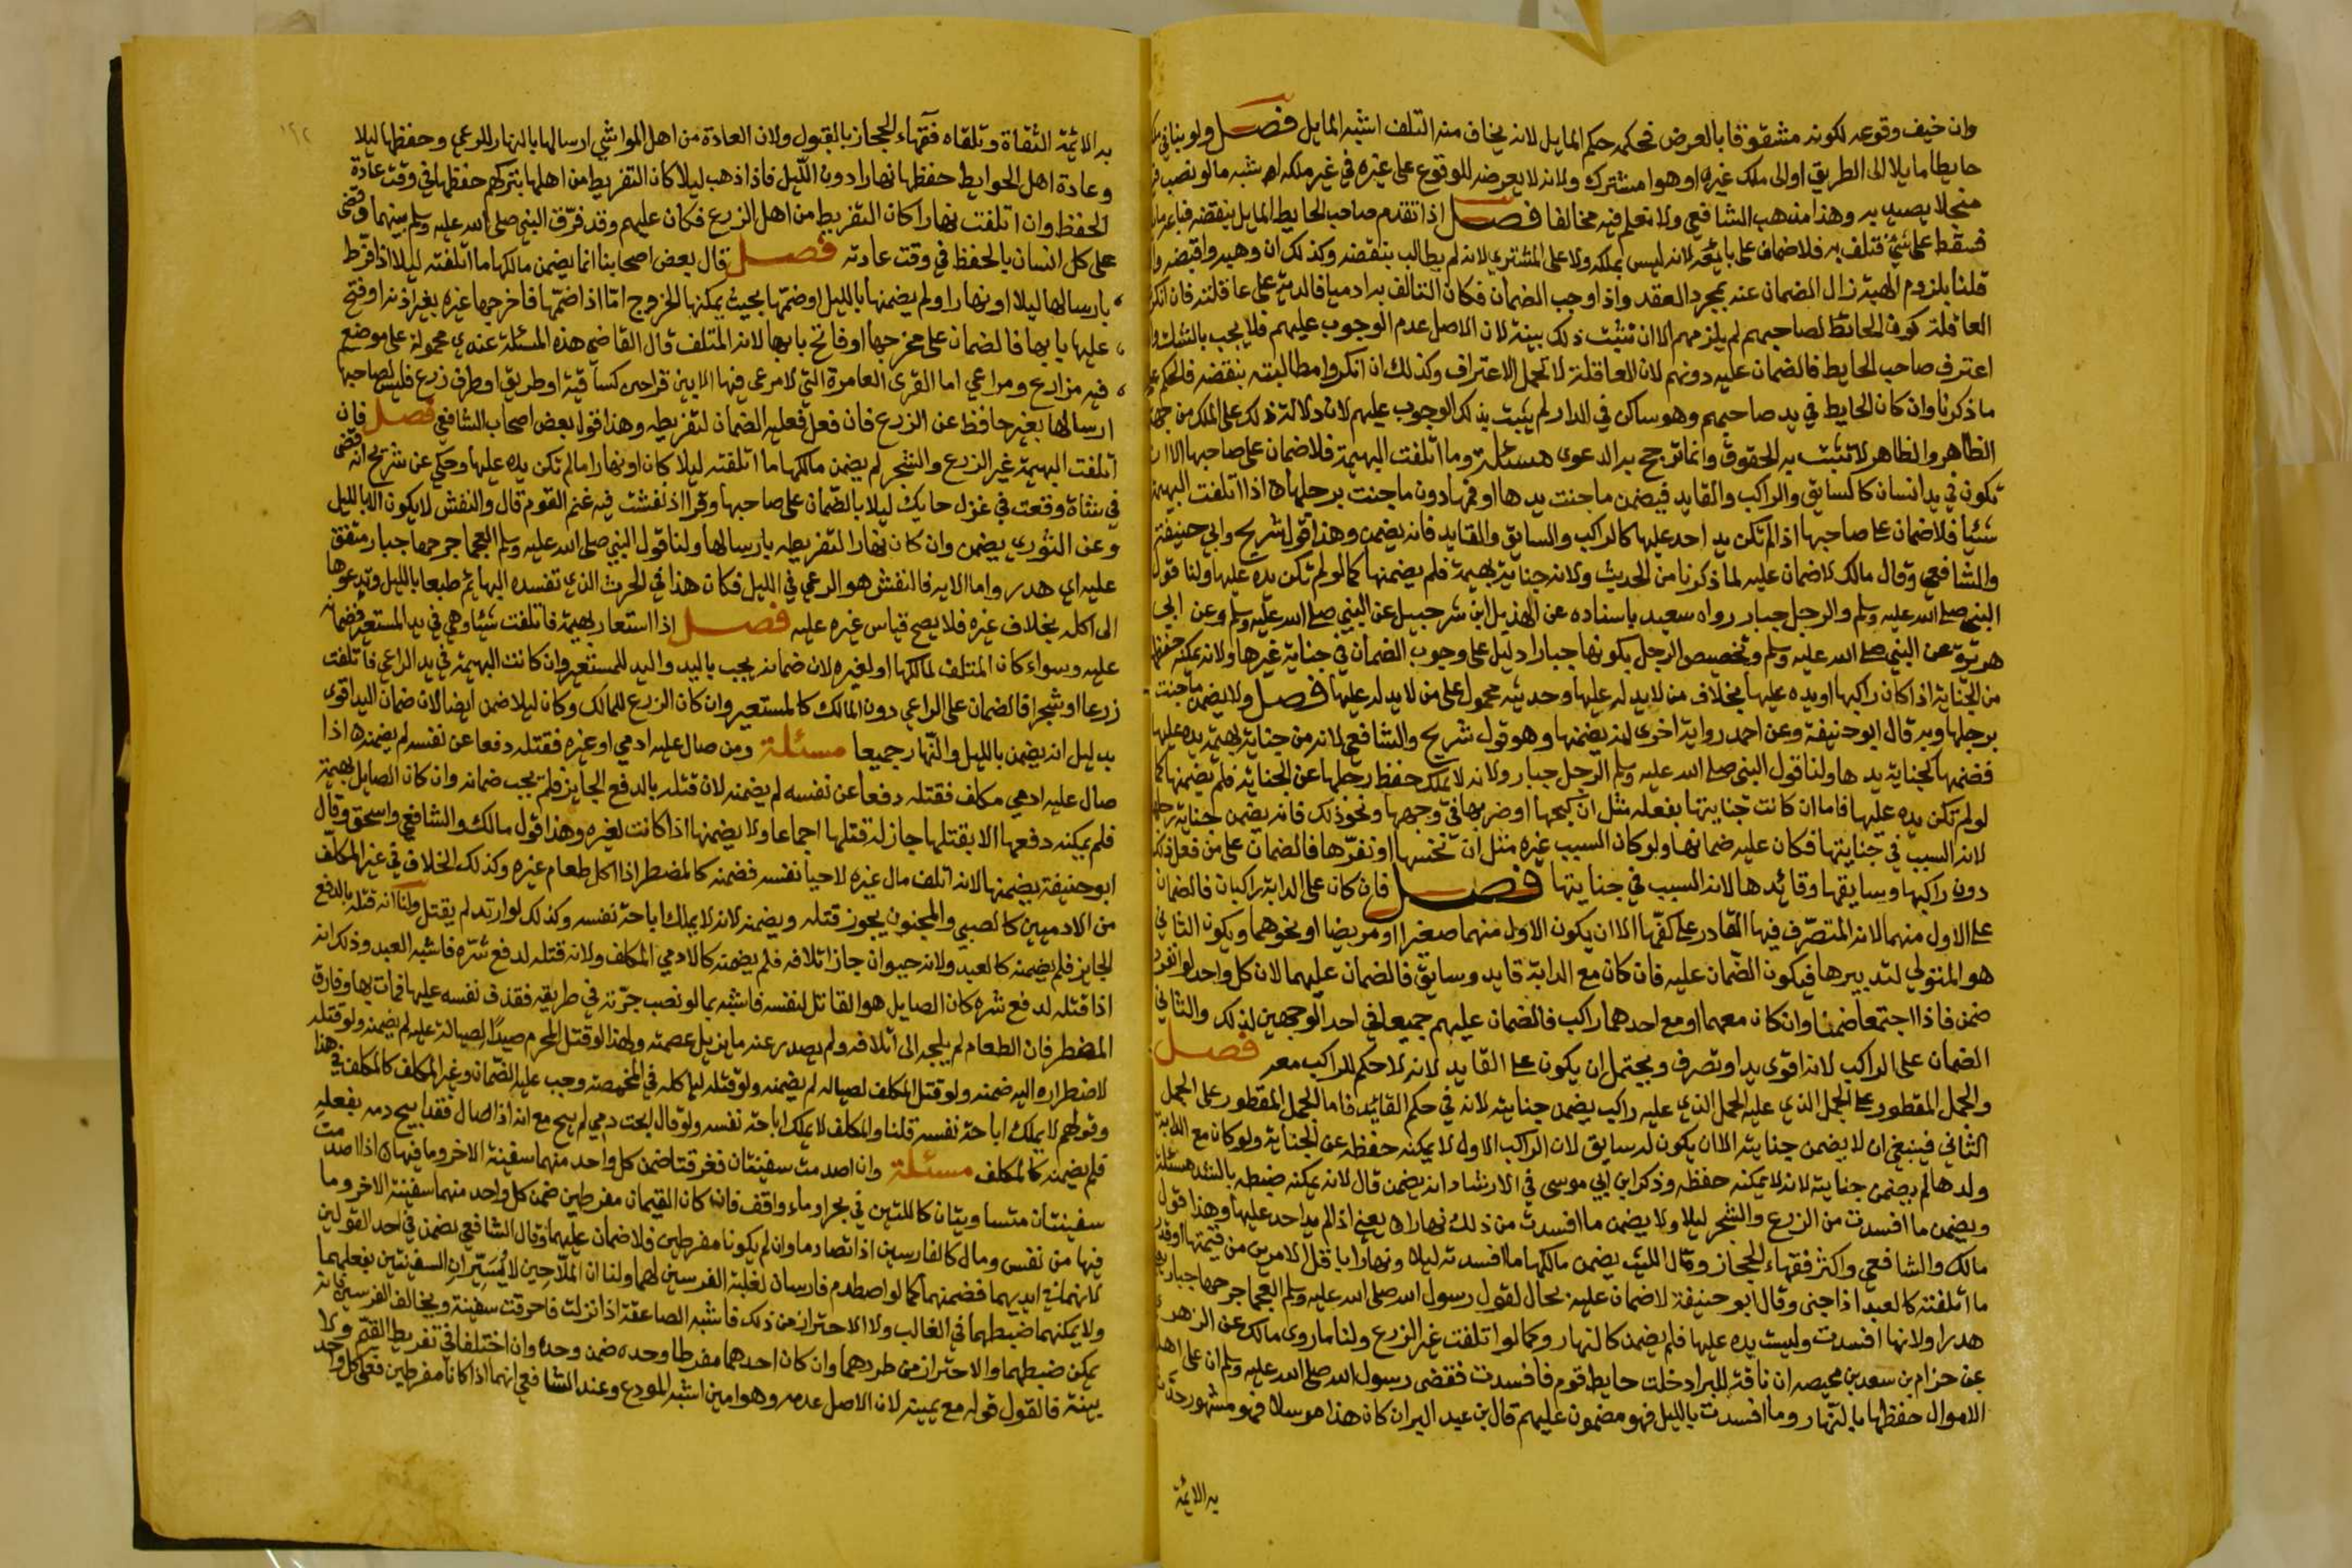 وان خيف وقوعه لكونه مشقوقا بالعرض فحكمه حكم المايل لانه يخاف منه التلف اشبه المايل فصل ولو بنا في
حايطا مايلا الى الطريق او الى ملك غيره او هوا مشترك ولانه لا يعرضه للوقوع على غيره في غير ملكه اشبه مالو نصب
منجلا يصيد به وهذا مذهب الشافعي ولا نعلم فيه مخالفا فصل اذا تقدم صاحب الحايط المايل بنقضه فباعه
فسقط على شئ فتلف به فلا ضمان على بايعه لانه ليس بملكه ولا على المشتري لانه لم يطالب بنقضه وكذلك ان وهبه واقبضه
قلنا بلزوم الهبة زال الضمان عنه بمجرد العقد واذا وجب الضمان فكان التالف به ادميا فالدية على عاقلته فان انكرت
العاقلة كون الحائط لصاحبهم لم يلزمهم الا ان تثبت ذلك ببينة لان الاصل عدم الوجوب عليهم فلا يجب بالشك
اعترف صاحب الحايط فالضمان عليه دونهم لان العاقلة لا تحمل الاعتراف وكذلك ان انكروا مطالبته بنقضه فالحكم
ما ذكرنا وان كان الحايط في يد صاحبهم وهو ساكن في الدار لم يثبت بذلك الوجوب عليهم لان دلالة ذلك على الملك من جهة
الظاهر والظاهر لا تثبت به الحقوق وانما ترجح به الدعوى مسئلة وما اتلفت البهيمة فلا ضمان على صاحبها الا ان
تكون في يد انسان كالسايق والراكب والقايد فيضمن ما جنت يدها او فمها دون ما جنت برجلها اذا اتلفت البهيمة
شيئا فلا ضمان على صاحبها اذا لم تكن يد احد عليها كالراكب والسايق والقايد فانه يضمن وهذا قول شريح وابي حنيفة
والشافعي وقال مالك لا ضمان عليه لما ذكرنا من الحديث ولانه جناية بهيمة فلم يضمنها كما لو لم تكن يده عليها ولنا قول
النبي صلى الله عليه وسلم والرجل جبار رواه سعيد باسناده عن الهذيل ابن شرحبيل عن النبي صلى الله عليه وسلم وعن ابي
هريرة عن النبي صلى الله عليه وسلم وتخصيص الرجل بكونها جبارا دليل على وجوب الضمان في جناية غيرها ولانه يمكنه حفظها
من الجناية اذا كان راكبها او يده عليها بخلاف من لا يد له عليها وحديثه محمول على من لا يد له عليها فصل ولا يضمن ما جنت
برجلها وبه قال ابو حنيفة وعن احمد رواية اخرى انه يضمنها وهو قول شريح والشافعي لانه من جناية بهيمة يده عليها
فضمنها كجناية يدها ولنا قول النبي صلى الله عليه وسلم الرجل جبار ولانه لا يملك حفظ رجلها عن الجناية فلم يضمنها كما
لو لم تكن يده عليها فاما ان كانت جنايتها بفعله مثل ان كبحها او ضربها في وجهها ونحو ذلك فانه يضمن جناية رجلها
لانه السبب في جنايتها فكان عليه ضمانها ولو كان السبب غيره مثل ان نخسها او نفرها فالضمان على من فعل ذلك
دون راكبها وسايقها وقائدها لانه السبب في جنايتها فصل فان كان على الدابة راكبان فالضمان
على الاول منهما لانه المتصرف فيها القادر على كفها الا ان يكون الاول منهما صغيرا او مريضا او نحوهما ويكون الثاني
هو المتولي لتدبيرها فيكون الضمان عليه فان كان مع الدابة قايد وسايق فالضمان عليهما لان كل واحد لو انفرد
ضمن فاذا اجتمعا ضمنا وان كان معهما او مع احدهما راكب فالضمان عليهم جميعا في احد الوجهين لذلك والثاني
الضمان على الراكب لانه اقوى يدا وتصرف ويحتمل ان يكون على القايد لانه لا حكم للراكب معه فصل
والجمل المقطور على الجمل الذي عليه الجمل الذي عليه راكب يضمن جنايته لانه في حكم القائد فاما الجمل المقطور على الجمل
الثاني فينبغي ان لا يضمن جنايته الا ان يكون له سايق لان الراكب الاول لا يمكنه حفظه عن الجناية ولو كان مع الدابة
ولدها لم يضمن جنايته لانه لا يمكنه حفظه وذكر ابن ابي موسى في الارشاد انه يضمن قال لانه يمكنه ضبطه بالشد مسئلة
ويضمن ما افسدت من الزرع والشجر ليلا ولا يضمن ما افسدت من ذلك نهارا يعني اذا لم يد احد عليها وهذا قول
مالك والشافعي واكثر فقهاء الحجاز وقال الليث يضمن مالكها ما افسدته ليلا ونهارا باقل الامرين من قيمتها او قدر
ما اتلفته كالعبد اذا جنى وقال ابو حنيفة لا ضمان عليه بحال لقول رسول الله صلى الله عليه وسلم العجما جرحها جبار
هدرا ولانها افسدت وليست يده عليها فلم يضمن كالنهار وكما لو اتلفت غير الزرع ولنا ما روى مالك عن الزهري
عن حزام بن سعد بن محيصه ان ناقة للبرا دخلت حايط قوم فافسدت فقضى رسول الله صلى الله عليه وسلم ان على اهل
الاموال حفظها بالنهار وما افسدت بالليل فهو مضمون عليهم قال بن عبد البر ان كان هذا مرسلا فهو مشهور حدث
به الائمة
به الائمة الثقاة وتلقاه فقهاء الحجاز بالقبول ولان العادة من اهل المواشي ارسالها بالنهار للرعي وحفظها ليلا
وعادة اهل الحوايط حفظها نهارا دون الليل فاذا ذهب ليلا كان التفريط من اهلها بتركهم حفظها في وقت عادة
الحفظ وان اتلفت نهارا كان التفريط من اهل الزرع فكان عليهم وقد فرق النبي صلى الله عليه وسلم بينهما وقضى
على كل انسان بالحفظ في وقت عادته فصل قال بعض اصحابنا انما يضمن مالكها ما اتلفته ليلا اذا فرط
بارسالها ليلا او نهارا ولم يضمنها بالليل او ضمها بحيث يمكنها الخروج اما اذا ضمها فاخرجها غيره بغير اذنه او فتح
عليها بابها فالضمان على مخرجها او فاتح بابها لانه المتلف قال القاضي هذه المسئلة عندي محمولة على موضع
فيه مزارع ومراعي اما القرى العامرة التي لا مرعى فيها الا بين قراحين كساقية او طريق او طرف زرع فليس لصاحبها
ارسالها بغير حافظ عن الزرع فان فعل فعليه الضمان لتفريطه وهذا قول بعض اصحاب الشافعي فصل فان
اتلفت البهيمة غير الزرع والشجر لم يضمن مالكها ما اتلفته ليلا كان او نهارا ما لم تكن يده عليها وحكي عن شريح انه قضى
في شاة وقعت في غزل حايك ليلا بالضمان على صاحبها وقرا اذ نفشت فيه غنم القوم قال والنفش لا يكون الا بالليل
وعن الثوري يضمن وان كان نهارا لتفريطه بارسالها ولنا قول النبي صلى الله عليه وسلم العجما جرحها جبار متفق
عليه اي هدر واما الاية فالنفش هو الرعي في الليل فكان هذا في الحرث الذي تفسده البهائم طبعا بالليل وتدعوها
الى اكله بخلاف غيره فلا يصح قياس غيره عليه فصل اذا استعار بهيمة فاتلفت شيئا وهي في يد المستعير فضمانه
عليه وسواء كان المتلف لمالكها او لغيره لان ضمانه يجب باليد واليد للمستعير وان كانت البهيمة في يد الراعي فاتلفت
زرعا او شجرا فالضمان على الراعي دون المالك كالمستعير وان كان الزرع للمالك وكان ليلا ضمن ايضا لان ضمان اليد اقوى
بدليل انه يضمن بالليل والنهار جميعا مسئلة ومن صال عليه ادمي او غيره فقتله دفعا عن نفسه لم يضمنه اذا
صال عليه ادمي مكلف فقتله دفعا عن نفسه لم يضمنه لان قتله بالدفع الجايز فلم يجب ضمانه وان كان الصايل بهيمة
فلم يمكنه دفعها الا بقتلها جاز له قتلها اجماعا ولا يضمنها اذا كانت لغيره وهذا قول مالك والشافعي واسحق وقال
ابو حنيفة يضمنها لانه اتلف مال غيره لاحيا نفسه فضمنه كالمضطر اذا اكل طعام غيره وكذلك الخلاف في غير المكلف
من الادميين كالصبي والمجنون يجوز قتله ويضمنه لانه لا يملك اباحة نفسه وكذلك لو ارتد لم يقتل ولنا انه قتله بالدفع
الجايز فلم يضمنه كالعبد ولانه حيوان جاز اتلافه فلم يضمنه كالادمي المكلف ولانه قتله لدفع شره فاشبه العبد وذلك انه
اذا قتله لدفع شره كان الصايل هو القاتل لنفسه فاشبه بما لو نصب حربة في طريقه فقذف نفسه عليها فمات بها وفارق
المضطر فان الطعام لم يلجه الى اتلافه ولم يصدر عنه ما يزيل عصمته ولهذا لو قتل المحرم صيدا لصياله عليه لم يضمنه ولو قتله
لاضطراره اليه ضمنه ولو قتل المكلف لصياله لم يضمنه ولو قتله لياكله في المخمصة وجب عليه الضمان وغير المكلف كالمكلف في هذا
وقولهم لا يملك اباحة نفسه قلنا والمكلف لا يملك اباحة نفسه ولو قال ابحت دمي لم يبح مع انه اذا صال فقد ابيح دمه بفعله
فلم يضمنه كالمكلف مسئلة وان اصدمت سفينتان فغرقتا ضمن كل واحد منهما سفينة الاخر وما فيها اذا اصدمت
سفينتان متساويتان كاللتين في بحر او ماء واقف فان كان القيمان مفرطين ضمن كل واحد منهما سفينة الاخر وما
فيها من نفس ومال كالفارسين اذا تصادما وان لم يكونا مفرطين فلا ضمان عليهما وقال الشافعي يضمن في احد القولين
لانهما في ايديهما فضمنهما كما لو اصطدم فارسان لغلبة الفرسين لهما ولنا ان الملاحين لا يسيران السفينتين بفعلهما
ولا يمكنهما ضبطهما في الغالب ولا الاحتراز من ذلك فاشبه الصاعقة اذا نزلت فاحرقت سفينة ويخالف الفرسين فانه
يمكن ضبطهما والاحتراز من طردهما وان كان احدهما مفرطا وحده ضمن وحده وان اختلفا في تفريط القيم ولا
بينة فالقول قوله مع يمينه لان الاصل عدمه وهو امين اشبه المودع وعند الشافعي انهما اذا كانا مفرطين فعلى كل واحد